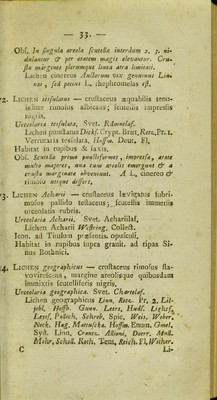 — 33. —
Obs. In singula areola scutella interdum 2. 3. ni-
dulantur & per ætatem magis elevantur. Cru-
stæ margines plerumque linea atra limitati.
Lichen cinereus Auctorum vix genuinus Lin-
næi, sed potius L. thephromelas est.
12. LICHEN tessulatus — crustaceus æquabilis tenu-
issime rimosus albicans; scutellis impressis
nigris.
Urceolaria tessulata, Svet. Rämnelaf.
Lichen punctatus Dicks. Crypt. Brit. Retz, Pr. 1.
Verrucaria tessulata, Hoffm. Deut. Fl.
Habitat in rupibus & saxis.
Obs. Scutella primo punctiformes, impressæ, ætate
multo majores, una cum areolis emergunt & a
crusta marginatæ obveniunt. A L. cinereo &
rimoso utique differt.
13. LICHEN Acharii — crustaceus lævigatus subri-
mosus pallido testaceus; scutellis immersis
urceolatis rubris.
Urceolaria Acharii, Svet. Achariilaf,
Lichen Acharii Westring, Collect.
Icon. ad Titulum præsentis opusculi.
Habitat in rupibus supra granit. ad ripas Si-
nus Bothnici.
14. LICHEN geographicus — crustaceus rimosus fla-
vovirescens, margine areolisque quibusdam
immixtis scutelliferis nigris.
Urceolaria geographica. Svet. Chartelaf.
Lichen geographicus Linn, Retz. Pr. 2, Lil-
jebl, Hoffb. Gunn. Leers, Huds. Lightf,
Leys, Pollich, Schreb, Spic, Weis, Weber,
Neck. Hag, Mattuscka. Hoffm. Enum. Gmel.
Syst. Linn, Crantz. Allioni, Doerr. Müll.
Mohr, Scholl. Roth. Tent, Reich. Fl, Wither.
C Li-